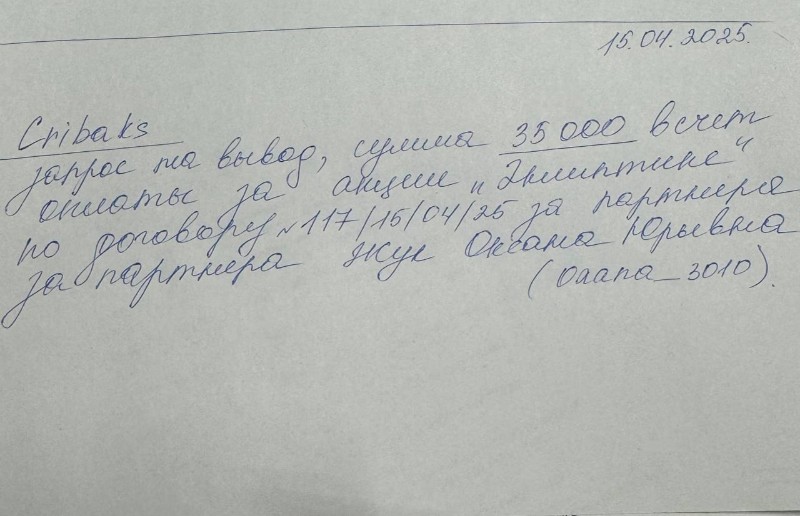 15.04.2025.
Cribaks
запрос на вывод, сумма 35 000 в счет
оплаты за акции „Эмиптике“
по договору №117/15/04/25 за партнера
за партнера Жук Оксана Юрьевна
(Oxana_3010).